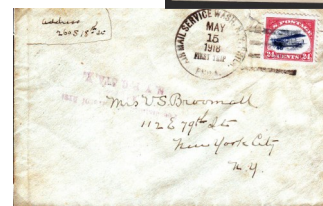 address
260 S 18th St
AIR MAIL SERVICE WASH.
MAY
15
1918
FIRST TRIP
PHILA.
U.S. POSTAGE
24 CENTS 24
Mrs V S Broomall
112 E 79th St
New York City
N.Y.